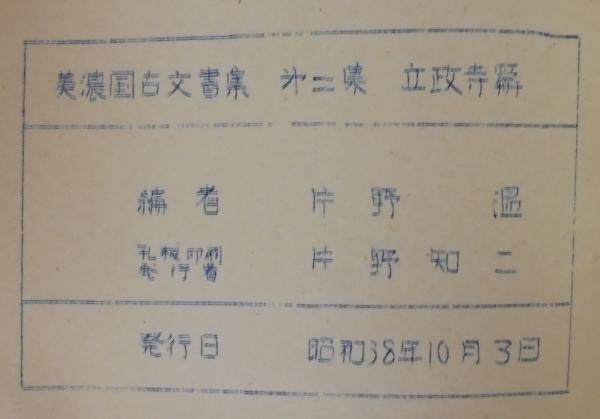 美濃国古文書集 㐧二集 立政寺篇
編者 片野 温
孔板印刷
発行者 片野知二
発行日 昭和38年10月3日